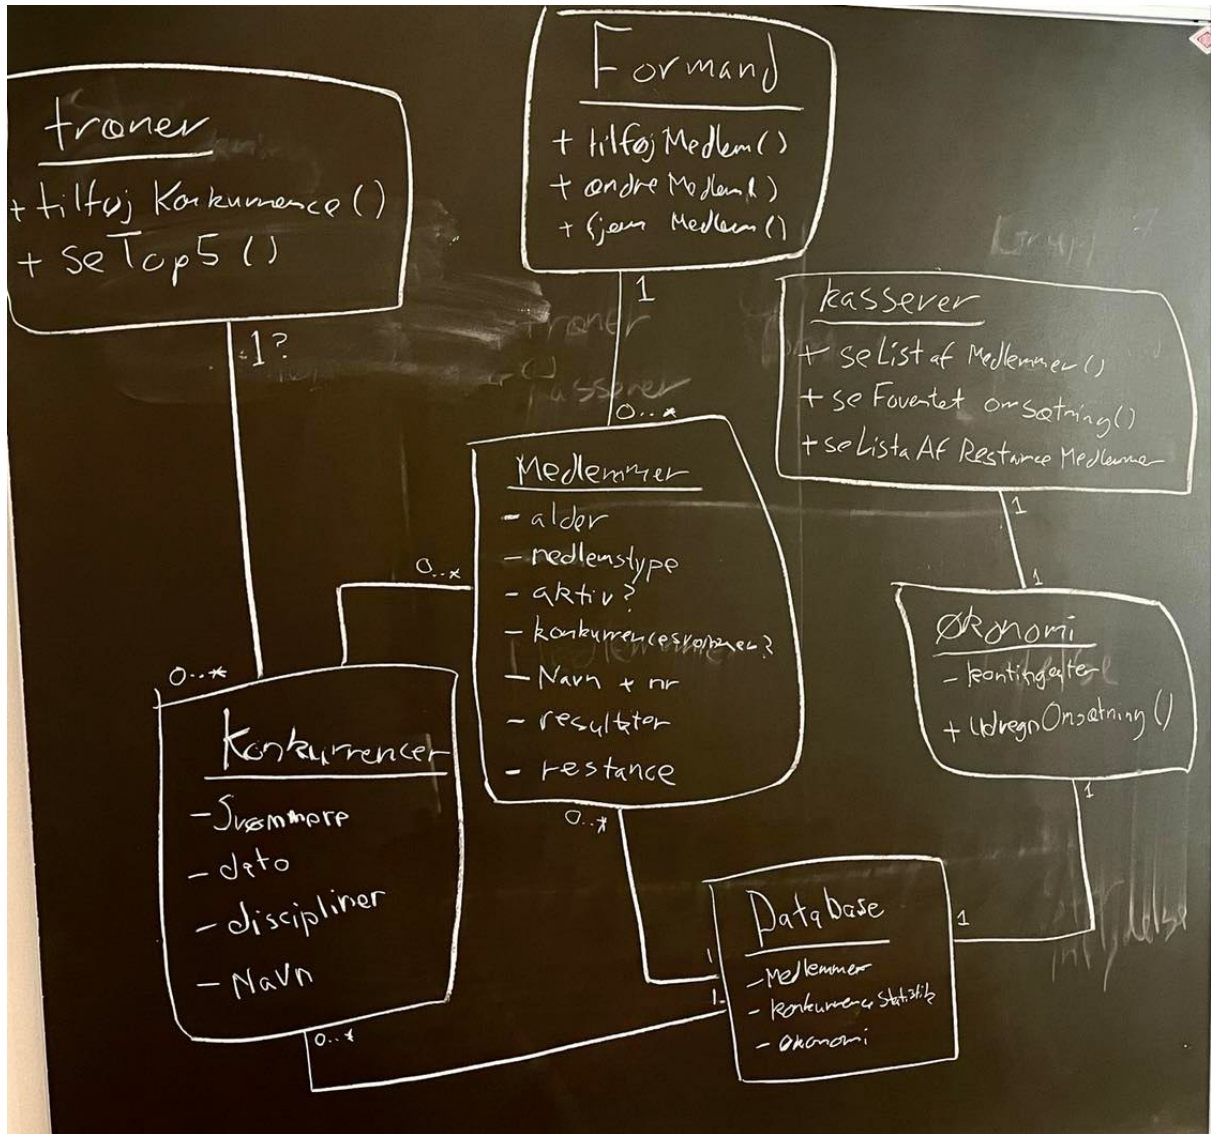 træner
+ tilføj Konkurrence()
+ seTop5()
1?
Formand
+ tilføjMedlem()
+ ændreMedlem()
+ fjern Medlem()
1
0..*
kasserer
+ seListaf Medlemmer()
+ se Foventet omsætning()
+ seListaAf Restance Medlemmer
1
1
Medlemmer
- alder
- medlemstype
- aktiv?
- konkurrencesvømmer?
- Navn + nr
- resultater
- restance
0..*
0..*
Økonomi
- kontingenter
+ UdregnOmsætning()
1
0..*
Konkurrencer
- Svømmere
- dato
- discipliner
- Navn
0..*
Database
- Medlemmer
- konkurrence statistik
- økonomi
1
1
1
træner
kasserer